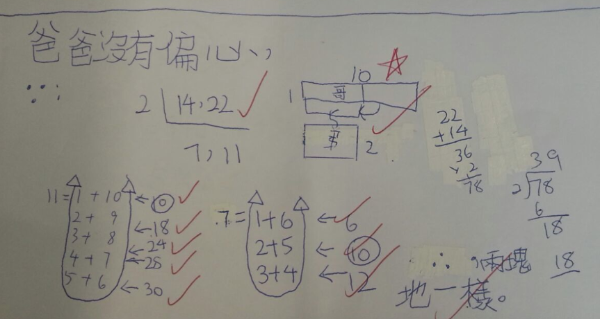 爸爸沒有偏心,
∵
2 14,22
7,11
10
1 哥
5
2
22
+14
36
×2
78
39
2 78
6
18
18
11=1+10 ←10
2+9 ←18
3+8 ←24
4+7 ←28
5+6 ←30
7=1+6 ←6
2+5 ←10
3+4 ←12
∴兩塊
地一樣。